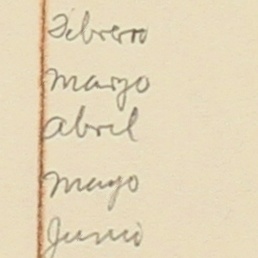 Febrero
Marzo
Abril
Mayo
Junio